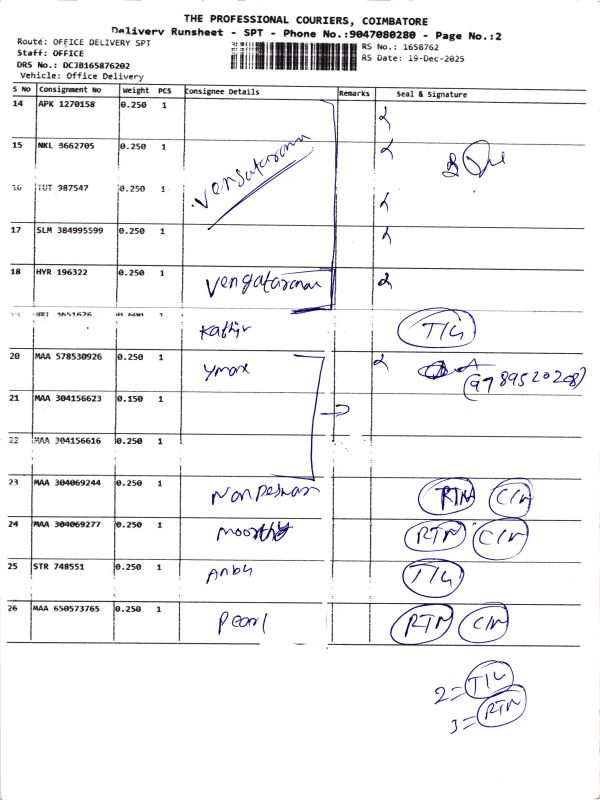 THE PROFESSIONAL COURIERS, COIMBATORE
Delivery Runsheet - SPT - Phone No.:9047080280 - Page No.:2
Route: OFFICE DELIVERY SPT
Staff: OFFICE
DRS No.: DCJB165876202
Vehicle: Office Delivery
RS No.: 1658762
RS Date: 19-Dec-2025
S No Consignment No Weight PCS Consignee Details Remarks Seal & Signature
14 APK 1270158 0.250 1
15 NKL 3662705 0.250 1
Vengataraman
16 TUT 987547 0.250 1
17 SLM 384995599 0.250 1
18 HYR 196322 0.250 1 Vengataraman
1 Kathir T/G
20 MAA 578530926 0.250 1 Ymax (9789520208)
21 MAA 304156623 0.150 1
22 MAA 304156616 0.250 1
23 MAA 304069244 0.250 1 RTN C/N
24 MAA 304069277 0.250 1 Moorthy RTN C/N
25 STR 748551 0.250 1 Anbu T/G
26 MAA 650573765 0.250 1 Pearl RTN C/N
2 = T/G
3 = RTN